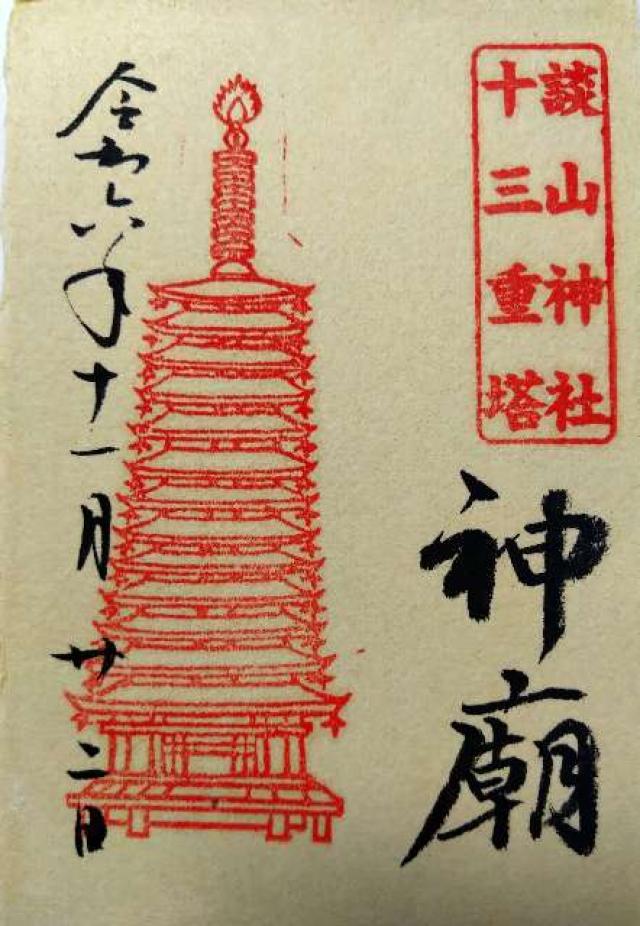 談山神社
十三重塔
神廟
令和六年十一月廿二日